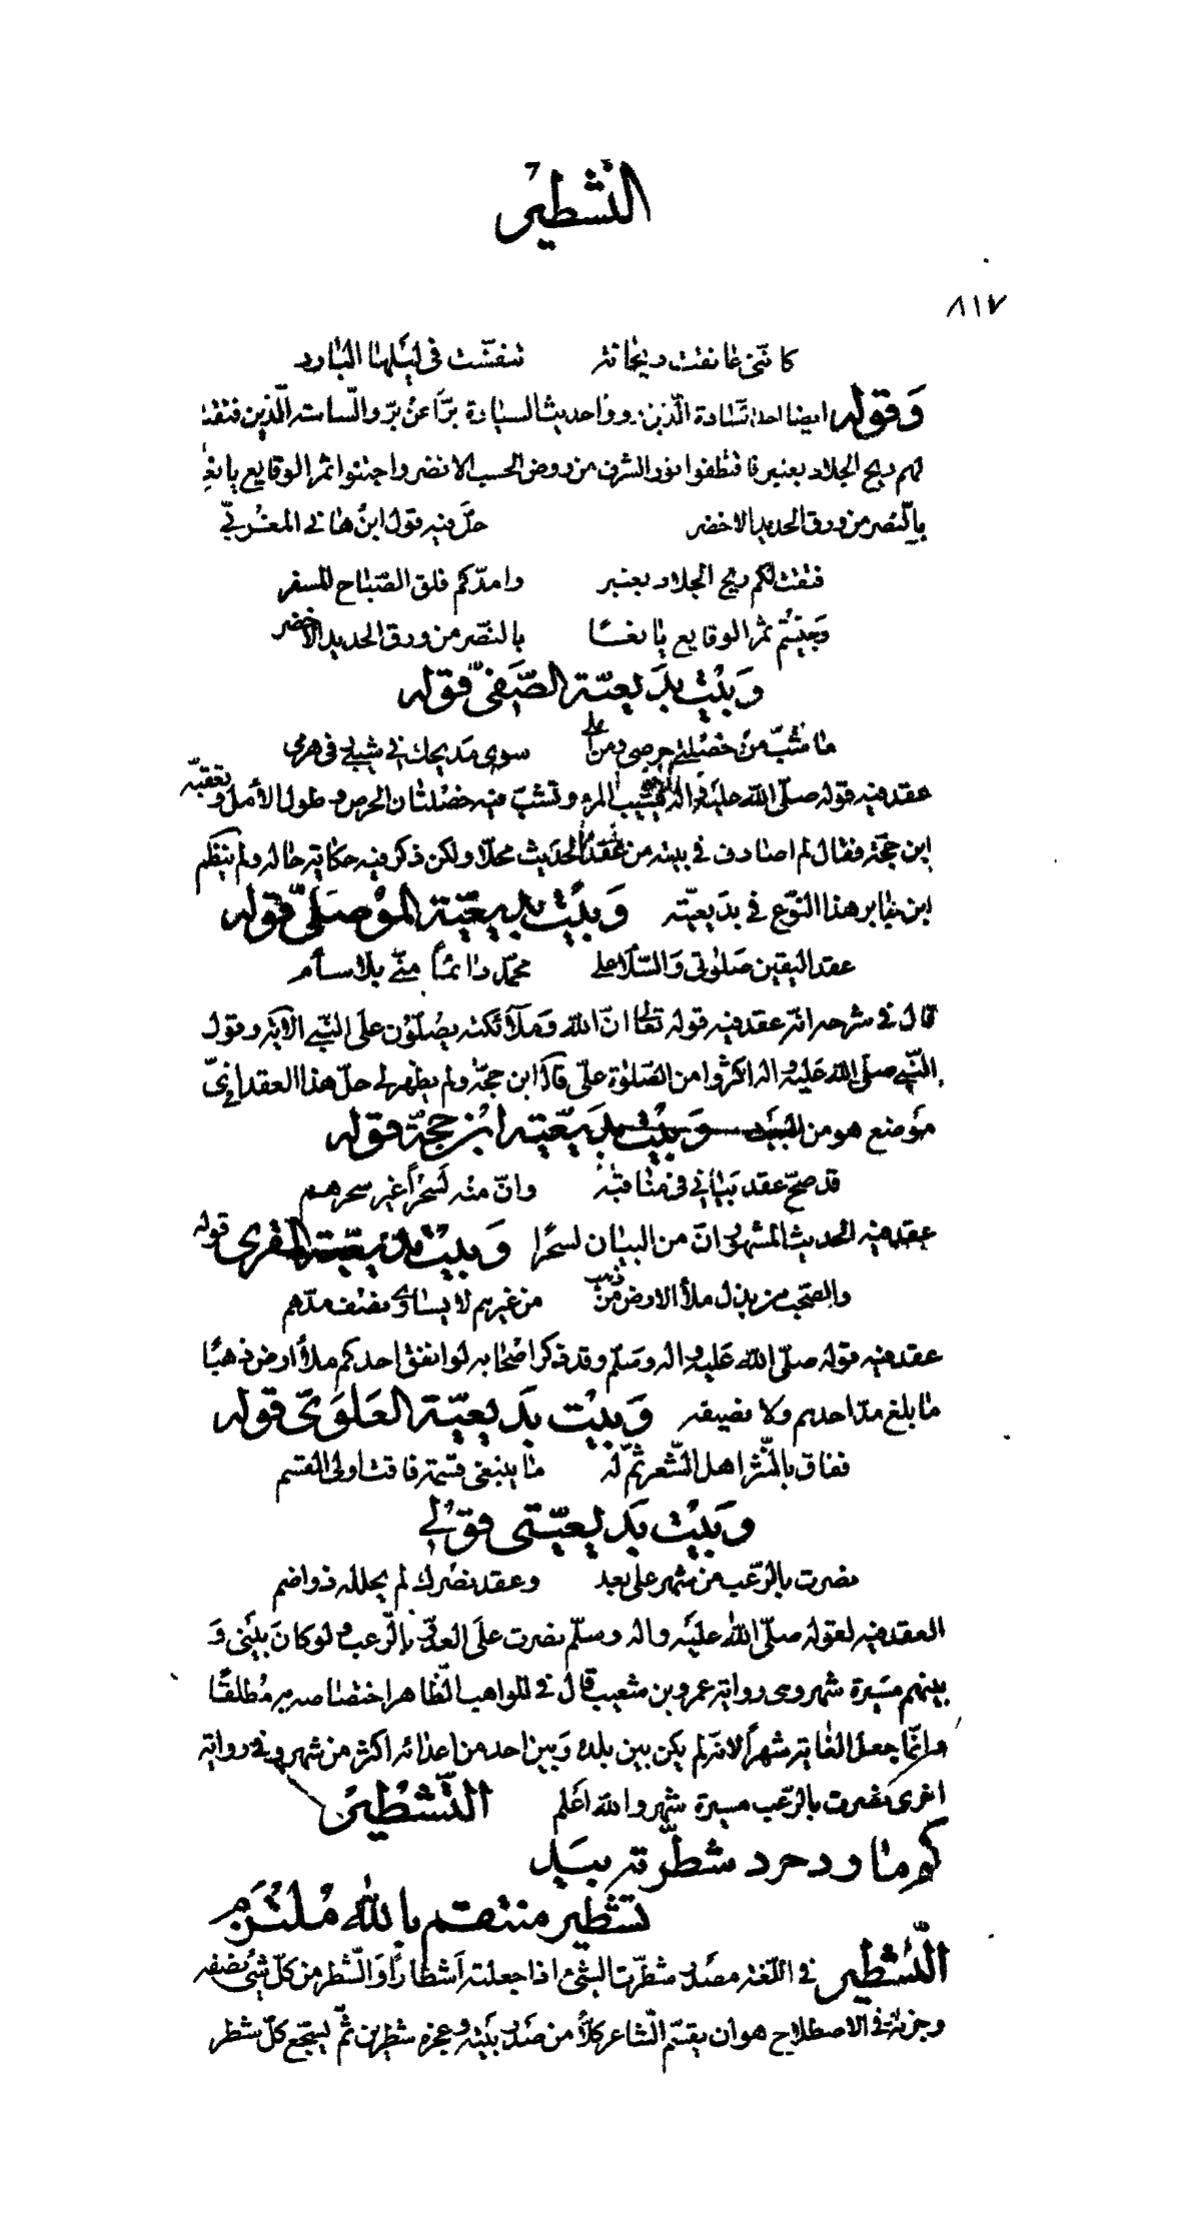 التشطير
٨١٧
كانّني عانقت ريحانة تنفّست في ليلها البارد
وقوله ايضا احد السّادة الّذين رووا حديث السيادة برّا عن برّ والسّاسة الّذين فتقت
لهم ريح الجلاد بعنبر فاقتطفوا نور الشرف من روض الحسب الانضر واجتنوا ثمر الوقايع يانعا
بالنّصر من ورق الحديد الاخضر حلّ فيه قول ابن هاني المغربيّ
فتقت لكم ريح الجلاد بعنبر وامدّكم فلق الصّباح المسفر
وجنيتم ثمر الوقايع يانعًا بالنّصر من ورق الحديد الاخضر
وبيت بديعيّة الصّفيّ قوله
ما شبّ من خصلتي حرصي ومن املي سوى مديحك في شيبي وفي هرمي
عقد فيه قوله صلّى الله عليه واله يشيب المرء وتشبّ فيه خصلتان الحرص وطول الأمل وتعقبه
ابن حجّة فقال لم اصادف في بيته من عقد الحديث محلّا ولكن ذكر فيه حكاية حاله ولم ينظم
ابن جابر هذا النّوع في بديعيّته وبيت بديعيّة الموصليّ قوله
عقد اليقين صلوتي والسّلام على محمّد دائمًا منّي بلا سأم
قال في شرحه انّه عقد فيه قوله تعالى انّ الله وملآئكته يصلّون على النّبي الآية وقول
النّبي صلّى الله عليه واله اكثروا من الصّلوة عليّ قال ابن حجّة ولم يظهر لي حلّ هذا العقد في ايّ
موضع هو من البيت وبيت بديعيّة ابن حجّة قوله
قد صحّ عقد بياني في مناقبه وانّ منه لسحرًا غير سحرهم
عقد فيه الحديث المشهور انّ من البيان لسحرا وبيت بديعيّة المقري قوله
والصّحب من بذل ملأ الارض من ذهب من غيرهم لا يساوي نصف مدّهم
عقد فيه قوله صلّى الله عليه واله وسلّم وقد ذكر اصحابه لو انفق احدكم ملأ ارض ذهبًا
ما بلغ مدّ احدهم ولا نصيفه وبيت بديعيّة العلويّ قوله
ففاق بالنّثر اهل الشّعر ثمّ له ما ينبغي قسمة فاقت اولي القسم
وبيت بديعيّتي قولي
نصرت بالرّعب من شهر على بعد وعقد نصرك لم يحلله ذو اضم
العقد فيه لقوله صلّى الله عليه واله وسلّم نصرت على العدوّ بالرّعب ولو كان بيني و
بينهم مسيرة شهر وهي رواية عمرو بن شعيب قال في المواهب الظّاهر اختصاصه به مطلقًا
وانّما جعل الغاية شهرًا لانّه لم يكن بين بلده وبين احد من اعدائه اكثر من شهر وفي رواية
اخرى نصرت بالرّعب مسيرة شهر والله اعلم التّشطير
كم مارد حرد شطّرته بيد تشطير منتقم بالله ملتزم
التّشطير في اللّغة مصدر شطّرت الشيء اذا جعلته اشطارًا والشّطر من كلّ شيء نصفه
وجزئه وفي الاصطلاح هو ان يقسّم الشّاعر كلًّا من صدر بيته وعجزه شطرين ثمّ يسجّع كلّ شطر